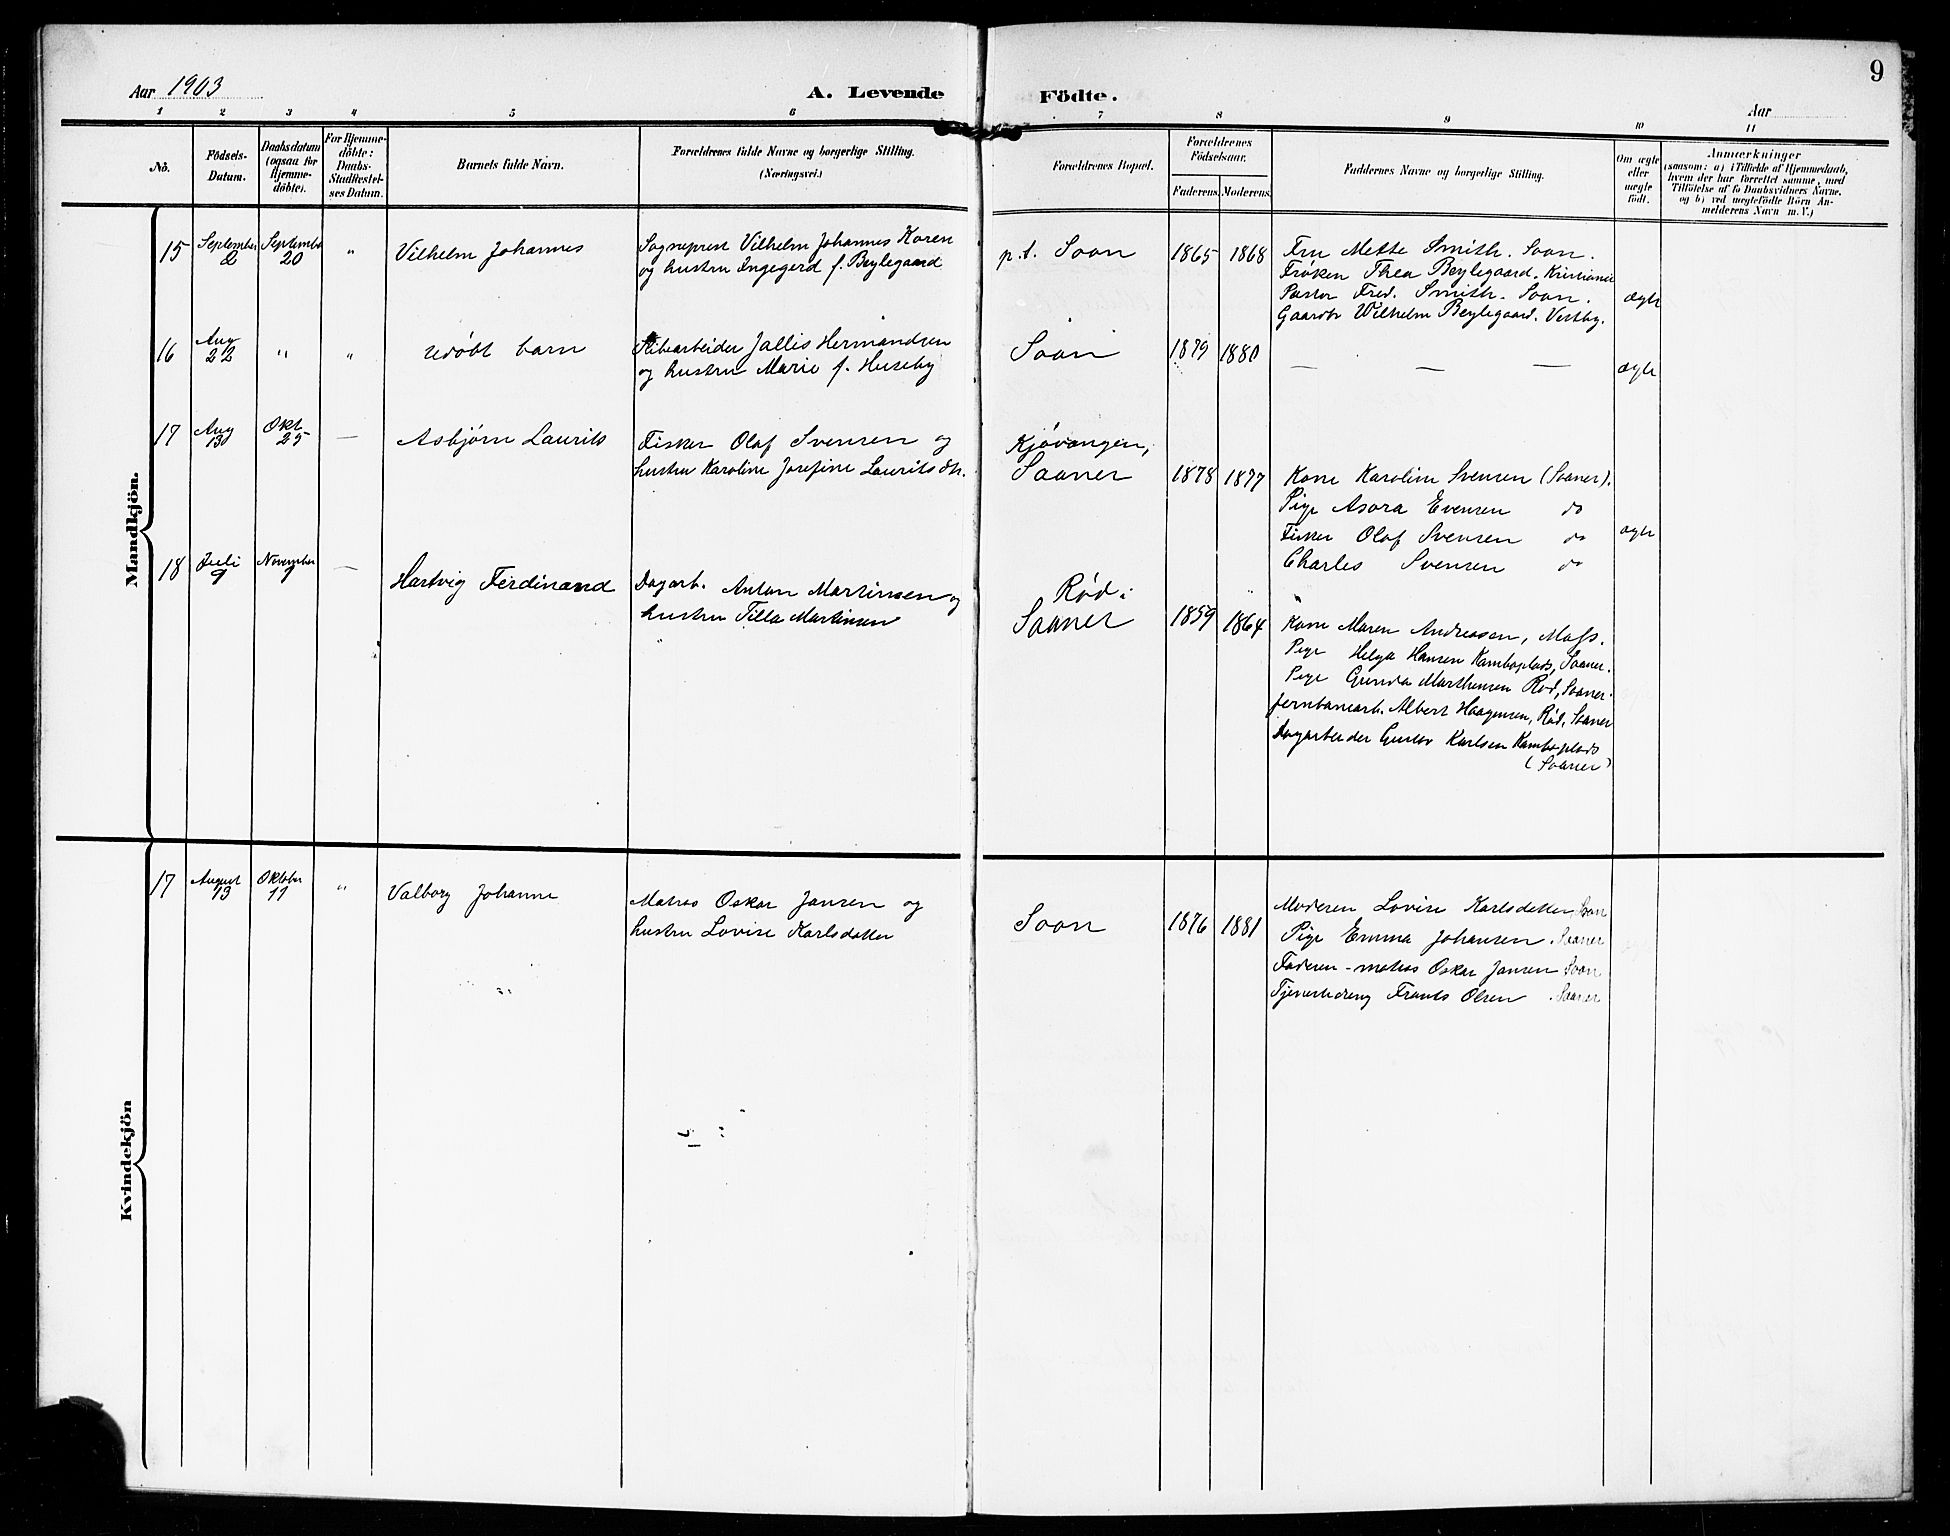 Aar 1903
A. Levende Födte.
9
Aar
1 2 3 4 5 6 7 8 9 10 11
No.
Födsels-
Datum.
Daabsdatum
(ogsaa for
Hjemme-
döbte).
For Hjemme-
döbte:
Daabs-
Stadfæstel-
ses Datum.
Barnets fulde Navn.
Forældrenes fulde Navne og borgerlige Stilling.
(Næringsvei.)
Forældrenes Bopæl.
Forældrenes
Födselsaar.
Faderens. Moderens.
Faddernes Navne og borgerlige Stilling.
Om ægte
eller
uægte
födt.
Anmærkninger
(saasom: a) i Tilfælde af Hjemmedaab,
hvem der har forrettet samme, med
Tilföielse af to Daabsvidners Navne,
og b) ved uægtefödte Börn An-
melderens Navn m. V.)
Mandkjön.
15 September 2 September 20 " Vilhelm Johannes
Sogneprest Vilhelm Johannes Koren
og hustru Ingegerd f. Beylegaard
p.t. Soon 1865 1868
Fru Mette Smith. Soon.
Frøken Thea Beylegaard. Kristiania
Pastor Fred. Smith. Soon.
Gaardbr Wilhelm Beylegaard. Vestby.
ægte
16 Aug 22 " " udöbt barn
Hermandsen
og hustru Marie f. Huseby
Soon 1879 1880
— — —
ægte
17 Aug 13 Okt 25 — Asbjørn Laurits
Fisker Olaf Svensen og
hustru Karoline Josefine Lauritsdtr.
Kjøvangen,
Saaner 1878 1877
Kone Karoline Svensen (Saaner).
Pige Asora Evensen do
Fisker Olaf Svensen do
Charles Svensen do
ægte
18 Juli 9 November — Hartvig Ferdinand
Dagarb. Anton Martinsen og
hustru Tilla Martinsen
Rød i
Saaner 1859 1864
Kone Maren Andreasen, Moss.
Pige Helga Hansen Kamboplads, Saaner.
Pige Gunda Marthinsen Rød, Saaner.
Jernbanearb. Albert Haagensen, Rød, Saaner
Dagarbeider Gustav Karlsen Kamboplads
(Saaner)
Kvindekjön
17 August 13 Oktober 11 " Valborg Johanne
Matros Oskar Jansen og
hustru Lovise Karlsdatter
Soon 1876 1881
Moderen Lovise Karlsdatter, Soon
Pige Emma Johansen. Saaner
Faderen - matros Oskar Jansen Soon
Tjenestedreng Frants Olsen. Saaner